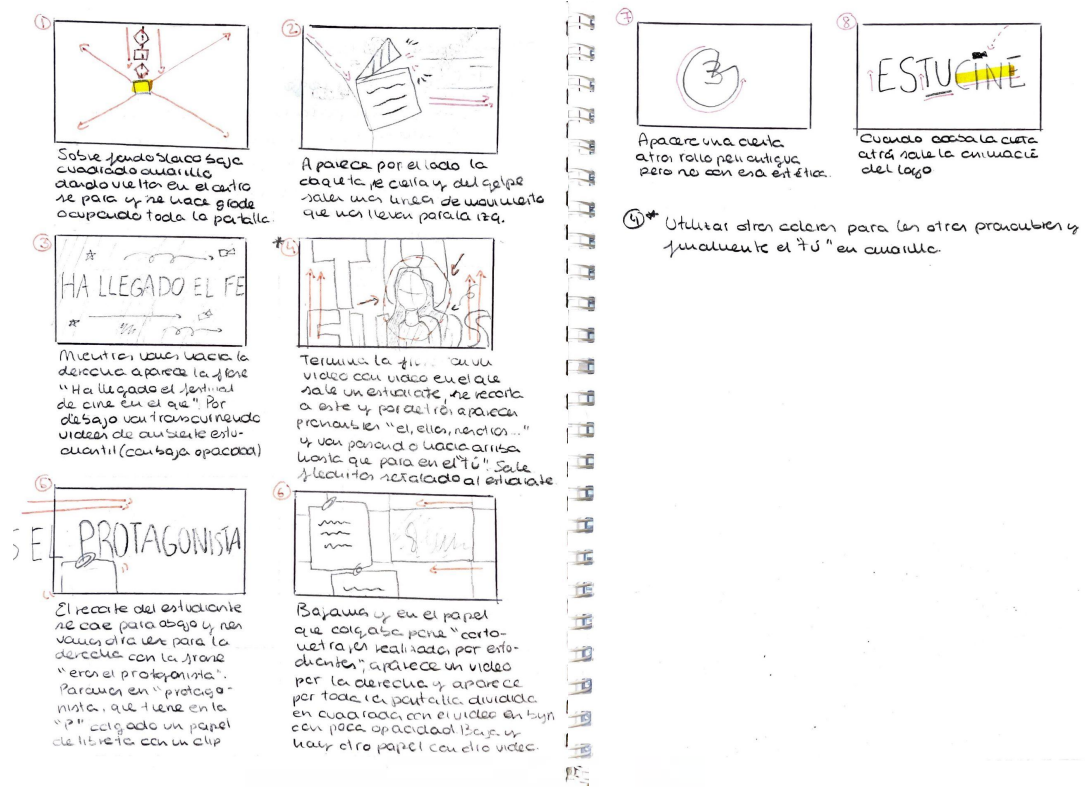 ①
Sobre fondo blanco baja
cuadrado amarillo
dando vueltas en el centro
se para y se hace grade
ocupando toda la pantalla.
2.
Aparece por el lado la
claqueta, se cierra y del golpe
salen unas lineas de movimiento
que nos llevan para la izq.
③
HA LLEGADO EL FE
Mientras vamos hacia la
derecha aparece la frase
"Ha llegado el festival
de cine en el que". Por
debajo van transcurriendo
videos de ambiente estu-
diantil (con baja opacidad)
*4.
T
ELLOS
Termina la
video con video en el que
sale un estudiante, se recorta
a este y por detrás aparecen
pronombres "el, ellos, nosotros..."
y van pasando hacia arriba
hasta que para en el "tú". Sale
flechitas señalado al estudiate.
⑤
S EL PROTAGONISTA
El recorte del estudiante
se cae para abajo y nos
vamos otra vez para la
derecha con la frase
"eres el protagonista".
Paramos en "protago-
nista, que tiene en la
"P" colgado un papel
de libreta con un clip
6
Bajamos y en el papel
que colgaba pone "corto-
metrajes realizados por estu-
diantes", aparece un video
por la derecha y aparece
por toda la pantalla dividida
en cuadrada con el video en byn
con poca opacidad. Baja y
hay otro papel con otro video.
⑦
3
Aparece una cuenta
atras rollo peli antigua
pero no con esa estética.
⑧
ESTUCINE
Cuando acaba la cuenta
atrás sale la animació
del logo
④* Utilizar otros colores para los otros pronombres y
finalmente el "tú" en amarillo.